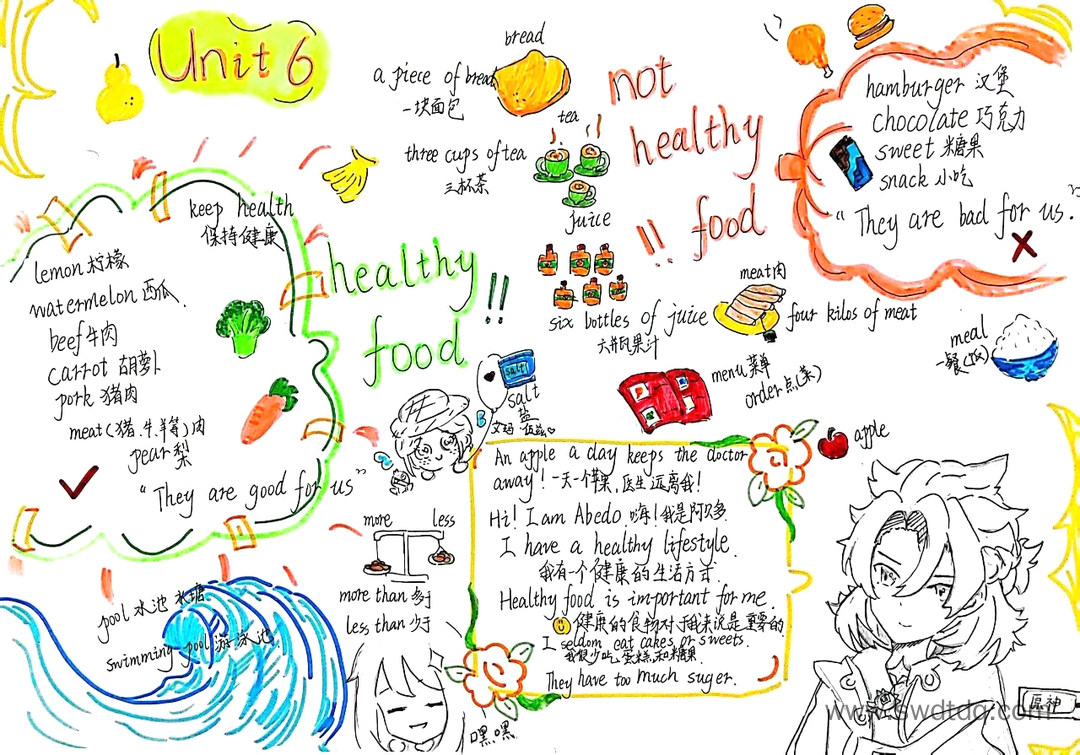 Unit 6
bread
a piece of bread
一块面包
tea
three cups of tea
三杯茶
juice
six bottles of juice
六瓶果汁
not
healthy
food
!!
hamburger 汉堡
chocolate 巧克力
sweet 糖果
snack 小吃
"They are bad for us."
keep health
保持健康
lemon 柠檬
watermelon 西瓜
beef 牛肉
carrot 胡萝卜
pork 猪肉
meat (猪.牛.羊等)肉
pear 梨
"They are good for us"
healthy
food
!!
meat 肉
four kilos of meat
menu 菜单
order 点(菜)
meal
一餐(饭)
salt
salt
盐
B
apple
An apple a day keeps the doctor
away! 一天一个苹果,医生远离我!
Hi! I am Abedo. 嗨!我是阿贝多.
I have a healthy lifestyle.
我有一个健康的生活方式
Healthy food is important for me.
健康的食物对于我来说是重要的
I seldom eat cakes or sweets.
我很少吃蛋糕和糖果.
They have too much suger.
more less
more than 多于
less than 少于
pool 水池 水塘
swimming pool 游泳池
嘿嘿
原神
www.swdtdq.com